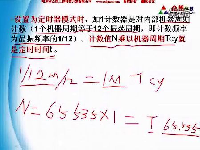 设置为定时器模式时，加1计数器是对内部机器周期
计数（1个机器周期等于12个振荡周期，即计数频率
为晶振频率的1/12）。计数值N乘以机器周期Tcy就
是定时时间t。
1/12 m/2 = 1M Tcy
N = 65535 × 1 = T